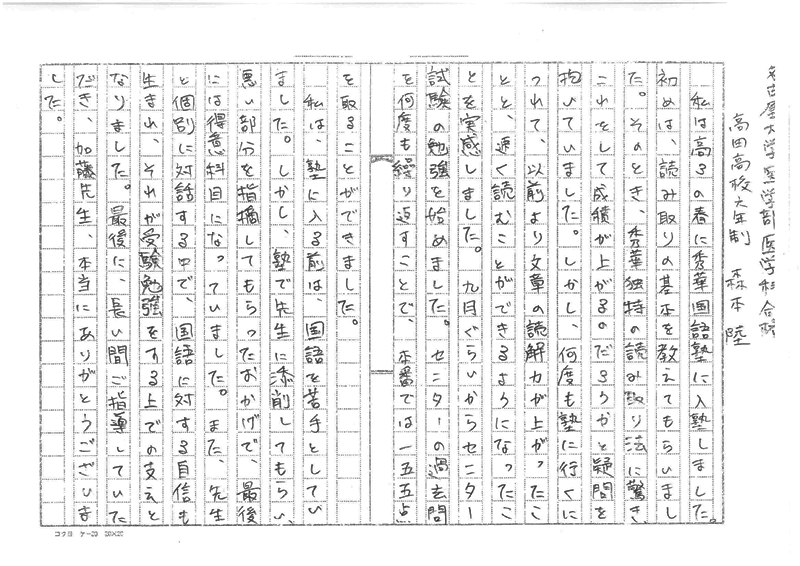 名古屋大学医学部医学科合格
高田高校六年制 森本 陸
私は高3の春に秀華国語塾に入塾しました。
初めは、読み取りの基本を教えてもらいまし
た。そのとき、秀華独特の読み取り法に驚き、
これをして成績が上がるのだろうかと疑問を
抱いていました。しかし、何度も塾に行くに
つれて、以前より文章の読解力が上がったこ
とと、速く読むことができるようになったこ
とを実感しました。九月ぐらいからセンター
試験の勉強を始めました。センターの過去問
を何度も繰り返すことで、本番では一五五点
を取ることができました。
私は、塾に入る前は、国語を苦手としてい
ました。しかし、塾で先生に添削してもらい、
悪い部分を指摘してもらったおかげで、最後
には得意科目になっていました。また、先生
と個別に対話する中で、国語に対する自信も
生まれ、それが受験勉強をする上での支えと
なりました。最後に、長い間ご指導していた
だき、加藤先生、本当にありがとうございま
した。
コクヨ ケ-20 20×20